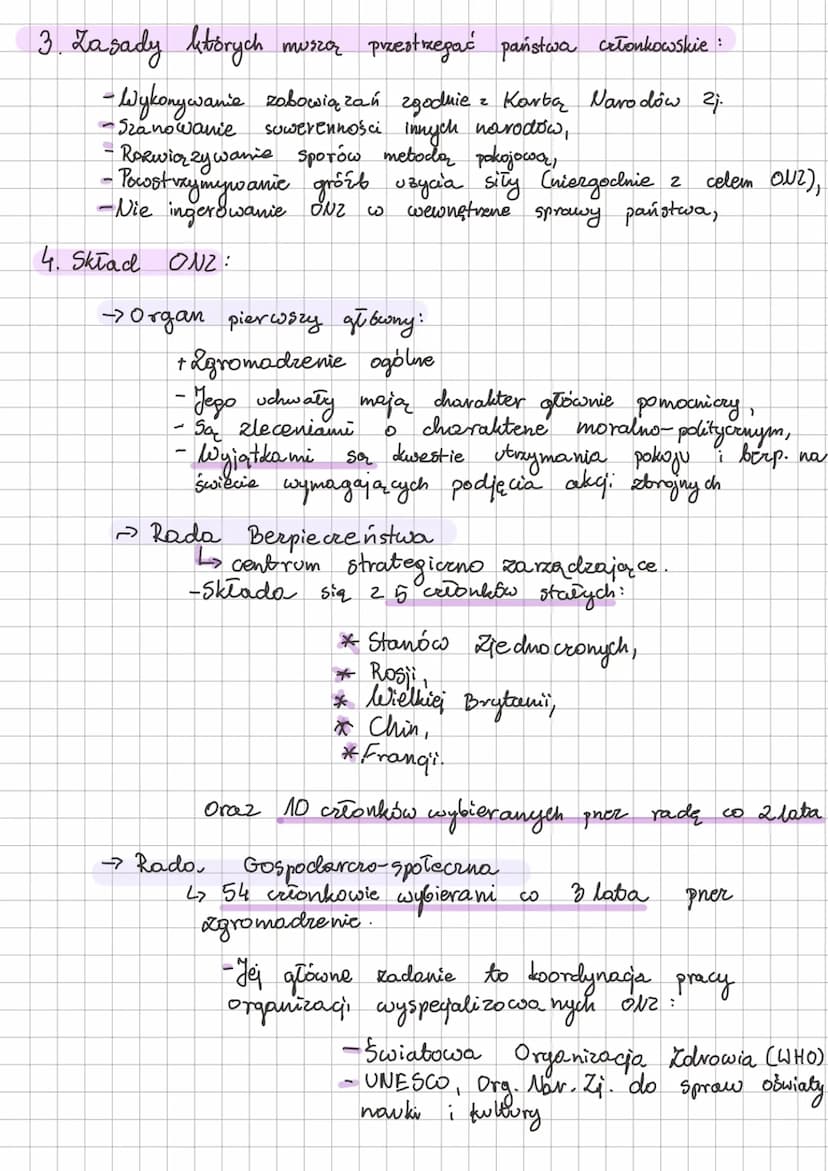 3. Zasady których muszą przestrzegać państwa członkowskie :
- Wykonywanie zobowiązań zgodnie z Kartą Narodów Zj.
- Szanowanie suwerenności innych narodów,
- Rozwiązywanie sporów metodą pokojową,
- Powstrzymywanie gróźb użycia siły (niezgodnie z celem ONZ),
- Nie ingerowanie ONZ w wewnętrzne sprawy państwa,
4. Skład ONZ :
→ Organ pierwszy główny:
+ Zgromadzenie ogólne
- Jego uchwały mają charakter głównie pomocniczy,
- Są zleceniami o charakterze moralno-politycznym,
- Wyjątkami są kwestie utrzymania pokoju i bezp. na
świecie wymagających podjęcia akcji zbrojnych
→ Rada Bezpieczeństwa
↳ centrum strategiczno zarządzające.
- Składa się z 5 członków stałych:
* Stanów Zjednoczonych,
* Rosji,
* Wielkiej Brytanii,
* Chin,
* Francji.
oraz 10 członków wybieranych przez radę co 2 lata
→ Rada Gospodarczo-społeczna
↳ 54 członkowie wybierani co 3 lata przez
zgromadzenie.
- Jej główne zadanie to koordynacja pracy
organizacji wyspecjalizowanych ONZ :
- Światowa Organizacja Zdrowia (WHO)
- UNESCO, Org. Nar. Zj. do spraw oświaty
nauki i kultury